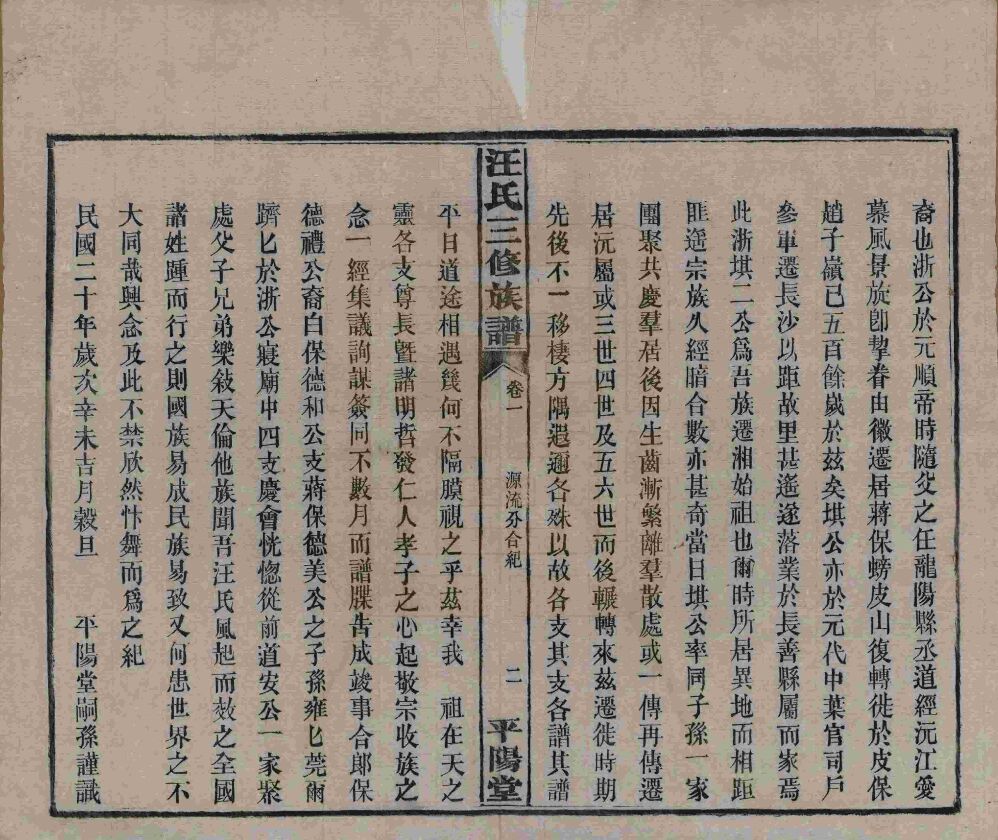 裔也浙公於元順帝時隨父之任龍陽縣丞道經沅江愛
慕風景旋卽挈眷由徽遷居蔣保螃皮山復轉徙於皮保
趙子嶺已五百餘歲於玆矣堪公亦於元代中葉官司戶
參軍遷長沙以距故里甚遙遂落業於長善縣屬而家焉
此浙堪二公爲吾族遷湘始祖也爾時所居異地而相距
匪遥宗族久經暗合數亦甚奇當日堪公率同子孫一家
團聚共慶羣居後因生齒漸繁離羣散處或一傳再傳遷
居沅屬或三世四世及五六世而後輾轉來玆遷徙時期
先後不一移棲方隅遐邇各殊以故各支其支各譜其譜
汪氏三修族譜 卷一 源流分合紀 二 平陽堂
平日道途相遇幾何不隔膜視之乎茲幸我 祖在天之
靈各支尊長曁諸明哲發仁人孝子之心起敬宗收族之
念一經集議詢謀簽同不數月而譜牒告成竣事合郞保
德禮公裔白保德和公支蔣保德美公之子孫雍七莞爾
躋匕於浙公寢廟中四支慶會恍惚從前道安公一家聚
處父子兄弟樂敍天倫他族聞吾汪氏風起而效之全國
諸姓踵而行之則國族易成民族易致又何患世界之不
大同哉興念及此不禁欣然忭舞而爲之紀
民國二十年歲次辛未吉月穀旦 平陽堂嗣孫謹識